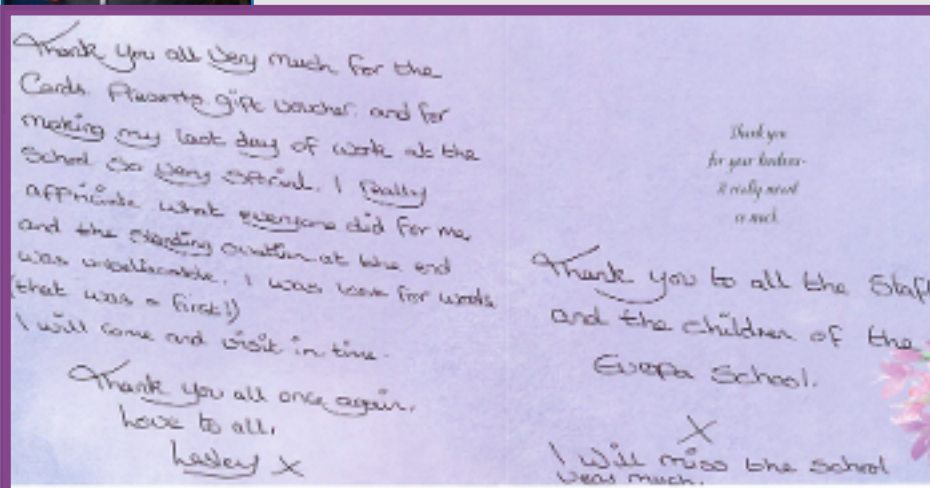 Thank you all very much for the
Cards. Presents, gift voucher, and for
making my last day of work at the
School so very special. I really
appriciate what everyone did for me
and the standing ovation at the end
was unbelievable. I was lost for words
(that was a first!)
I will come and visit in time.
Thank you all once again.
Love to all,
Lesley X
Thank you
for your kindness-
it really meant
so much.
Thank you to all the Staff
and the children of the
Europa School.
X
I will miss the school
very much.